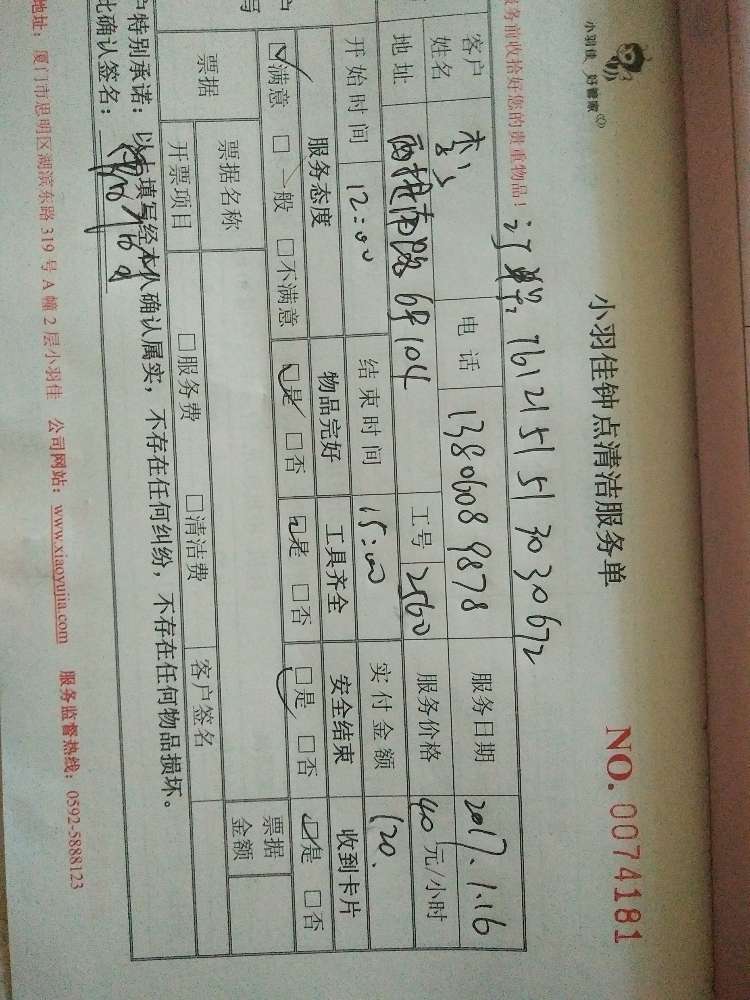 小羽佳 好管家
小羽佳钟点清洁服务单
NO.0074181
务前收拾好您的贵重物品! 7612151513030672
客户姓名 李 电话 13806089878 服务日期 2017.1.16
地址 64 104 工号 2560 服务价格 40元/小时
开始时间 12:00 结束时间 15:00 实付金额 120.
服务态度 物品完好 工具齐全 安全结束 收到卡片
☑满意 □一般 □不满意 ☑是 □否 ☑是 □否 ☑是 □否 ☑是 □否
票据 票据名称 票据金额
开票项目 □服务费 □清洁费 客户签名
户特别承诺:以上填写经本人确认属实,不存在任何纠纷,不存在任何物品损坏。
此确认签名:
地址:厦门市思明区湖滨东路319号A幢2层小羽佳 公司网站:www.xiaoyujia.com 服务监督热线:0592-5888123